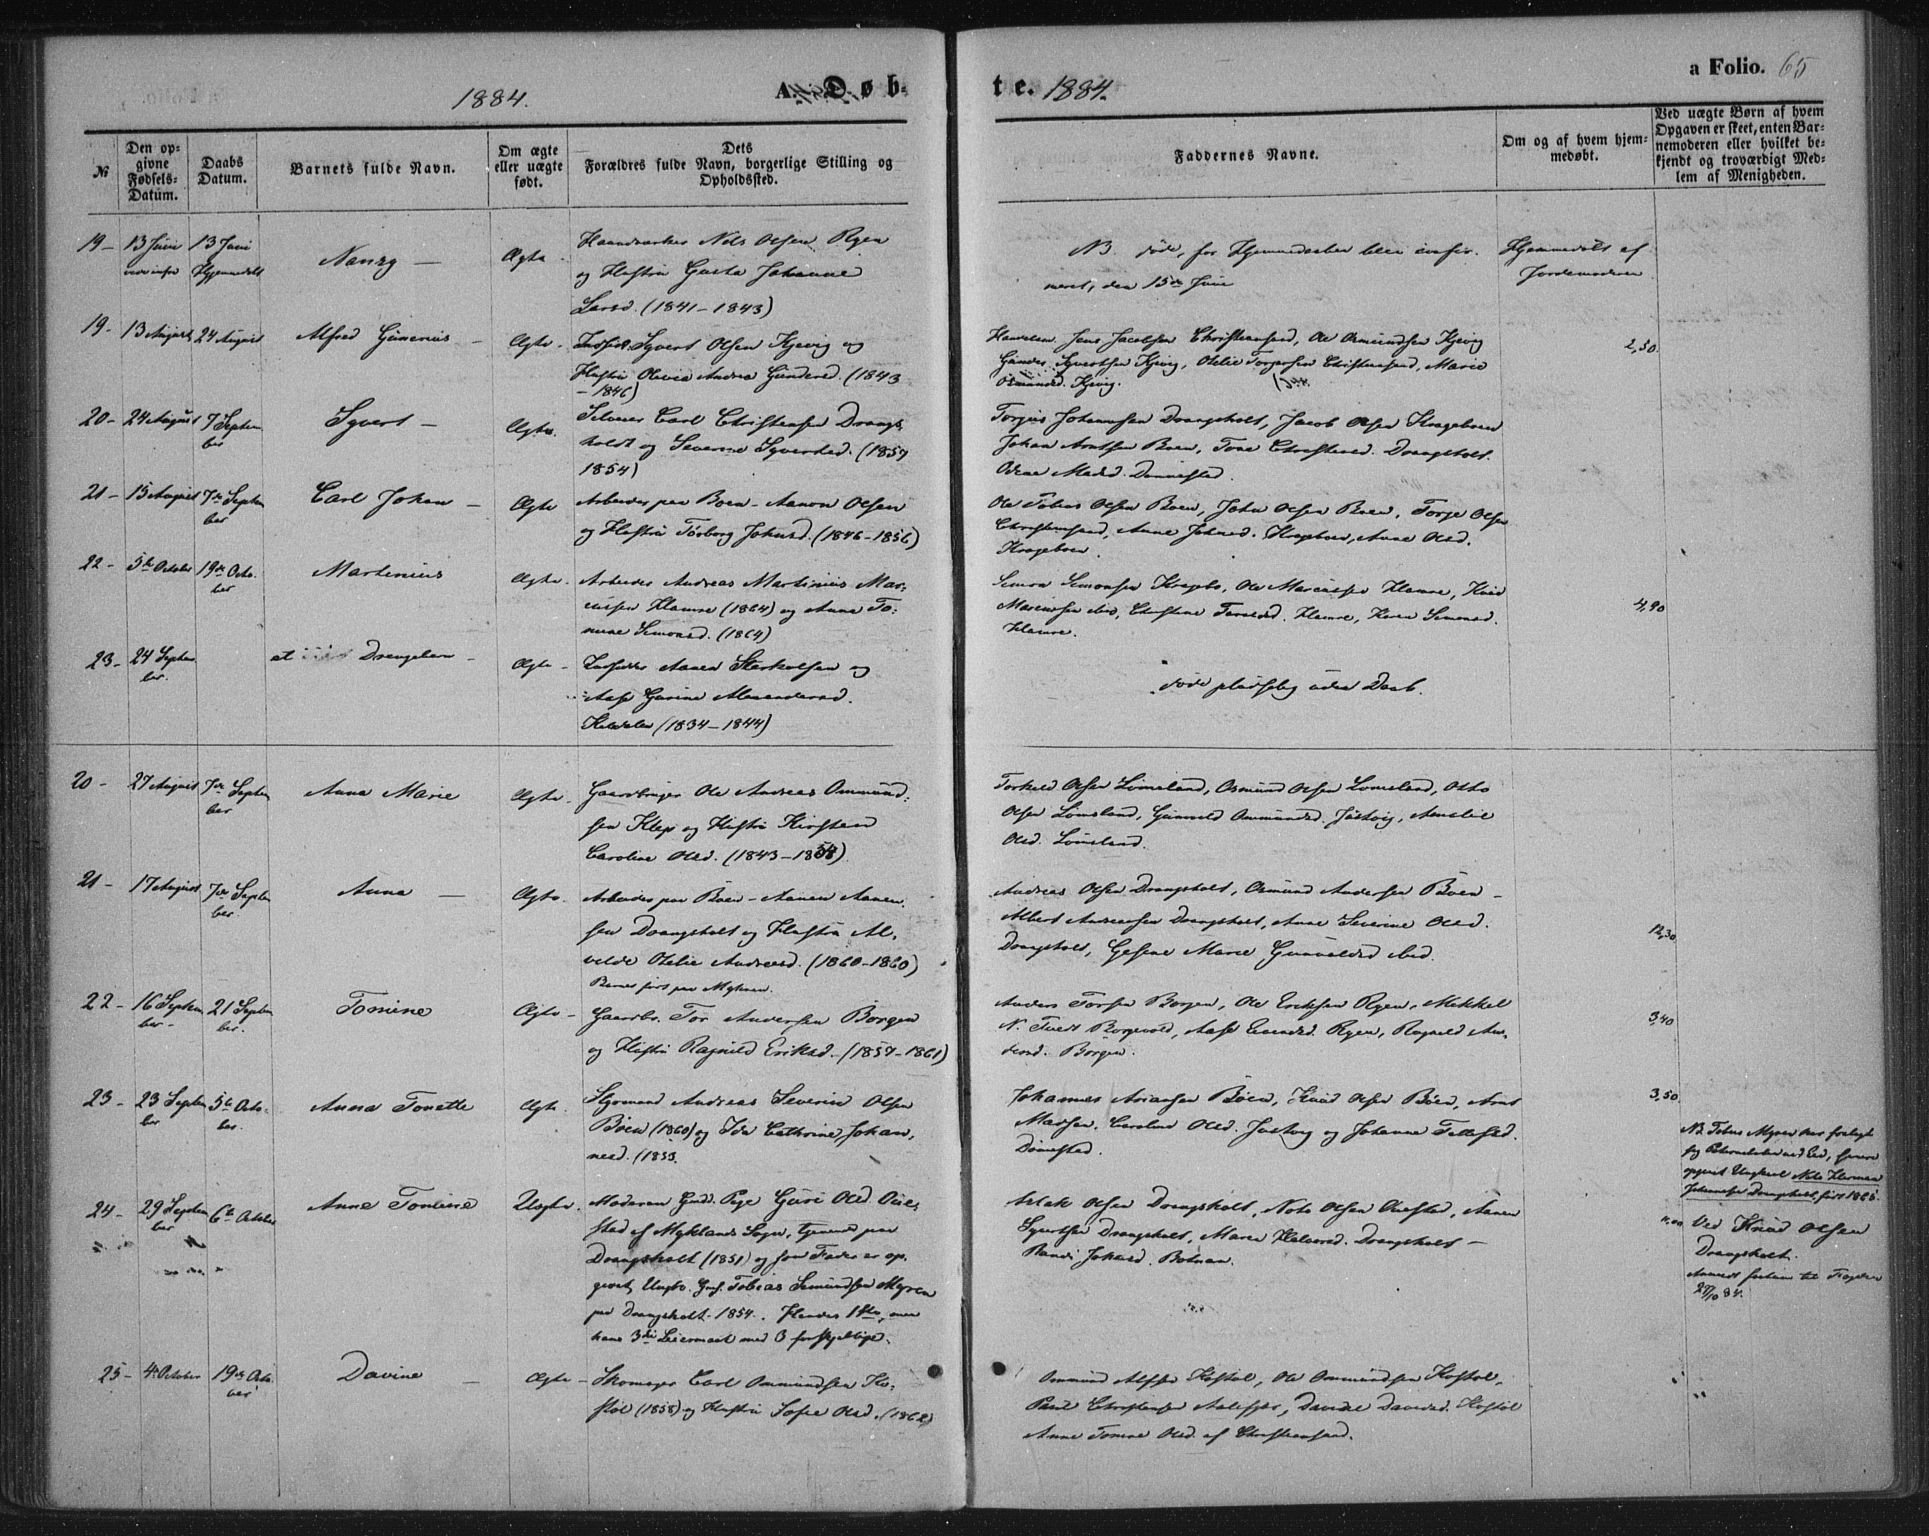 1884.
A. Døb-
te. 1884.
a Folio. 65
№
Den op-
givne
Fødsels-
Datum.
Daabs
Datum.
Barnets fulde Navn.
Om ægte
eller uægte
født.
Dets
Forældres fulde Navn, borgerlige Stilling og
Opholdssted.
Faddernes Navne.
Om og af hvem hjem-
medøbt.
Ved uægte Børn af hvem
Opgaven er skeet, enten Bar-
nemoderen eller hvilket be-
kjendt og troværdigt Med-
lem af Menigheden.
19 - 13 Juni 13 Juni
Hjemmedøbt
Nanzy -
Ægte
Haandværker Nils Olsen Ryen
og Hustru Gusta Johanne
Larsd. (1841-1843)
NB. døde, før Hjemmedaaben blev confir-
meret, den 15de Juni
Hjemmedøbt af
Jordemoderen
19 - 13 August 24 August
Alfred Gunerius -
Ægte.
Inds. Syvert Olsen Kjevig og
Hustru Olevia Andrea Gundersd. (1843
- 1846)
Handelsm. Jens Jacobsen Christiansand, Ole Osmundsen Kjevig
Gunder Syvertsen Kjevig, Otelie Torgersen Christiansand, Marie
Osmundsd. Kjevig.
2,50.
20 - 24 August 7 Septem
ber
Syvert -
Ægte.
Selveier Carl Christensen Drangs-
holdt og Severine Syvertsd. (1857
1854)
Torjus Johannesen Drangsholt, Jacob Olsen Krageboen
Johan Arntsen Boen, Tone Christensd. Drangsholt.
Odine Madsd. Dønnestad.
21 - 15 August 7de Septem
ber
Carl Johan -
Ægte
Arbeider paa Boen - Aanon Olsen
og Hustru Torborg Johnsd. (1846-1856)
Ole Tobias Olsen Boen, John Olsen Boen, Torje Olsen
Christiansand, Anne Johnsd. Krageboen, Anne Olsd.
Krageboen.
22 - 5te October 19de Octo-
ber
Martinius
Ægte.
Arbeider Andreas Martinius Mar-
cussen Hamre (1864) og Anne To-
mine Simonsd. (1864)
Simon Simonsen Kragebo, Ole Marcussen Hamre, Knud
Marcussen ibid, Christine Terjesd. Hamre, Karen Simonsd.
Hamre.
4,90
23 - 24 Septem
ber.
et Drengebarn -
Ægte -
Indsidder Aanen Sterkolsen og
Aase Gurine Alexandersd.
(1834-1844)
døde pludselig uden Daab.
20 - 27 August 7de Septem
ber
Anna Marie
Ægte.
Gaardbruger Ole Andreas Ommund-
sen Klep og Hustru Kirsten
Caroline Olsd. (1843-1858).
Torkild Olsen Lømsland, Osmund Olsen Lømsland, Otto
Olsen Lømsland, Gunvald Ommundsd. Justvig, Amalie
Olsd. Lømsland.
21 - 17 August 7de Septem
ber.
Anna -
Ægte.
Arbeider paa Boen - Aanen Aanen-
sen Drangsholt og Hustru Al-
vilde Otelie Andreasd. (1860-1860)
Barnet født paa Myhren.
Andreas Olsen Drangsholt, Osmund Andersen Boen -
Albert Andreassen Drangsholt, Anne Severine Olsd.
Drangsholt, Gesine Marie Gunvaldsd. ibid.
12,30
22 - 16 Septem
ber - 21 Septem
ber.
Tomine
Ægte -
Gaardbr. Tor Andersen Borgen
og Hustru Ragnild Eriksd. - (1857-1861)
Anders Torsen Borgen, Ole Eriksen Ryen, Mikkel
N. Tvedt Borgevold, Aase Evensd. Ryen, Ragnild An-
dersd. Borgen.
3,40
23 - 23 Septem
ber 5te Octo-
ber.
Anna Tonette
Ægte.
Styrmand Andreas Severin Olsen
Boen (1860) og Ida Cathrine Johan-
nesd. (1853.
Johannes Ariansen Boen, Knud Olsen Boen, Arnt
Madsen, Caroline Olsd. Justvig og Johanne Tellefsd.
Dønnestad.
3,50
24 - 29 Septem
ber 6te October
Anne Tomine
Uægte.
Moderen Pige Guri Olsd.
stad af Myklands Sogn, tjenende paa
Drangsholt (1851) og som Fader er op-
givet Ungkr. Tobias Simundsen Myren
paa Drangsholt - 1854. Hendes 1ste, men
hans 3die Leiermaal med 3 forskjellige.
Aslak Olsen Drangsholt, Nils Olsen Ovestad, Aanen
Syvertsen Drangsholt, Maren Halvorsd. Drangsholt -
Randi Johnsd. Botnen.
NB. Tobias Myren har fralagt
sig Paterniteten ved Eed, senere
opgivet Ungkarl Nils Herman
Johannesen Drangsholt, født 1865.
Ved Knud Olsen
Drangsholt.
Anmeldt til Fogden
27/10 84.
25 - 4de October 19de Octo-
ber
Davine -
Ægte -
Skomager Carl Ommundsen Ho-
støl (1858) og Hustru Sofie Olsd. (1862)
Ommund Alfsen Hostøl, Ole Ommundsen Hostøl,
Paul Christensen, Davine Davidsd. Hostøl
Anne Tomine Olsd. af Christiansand.